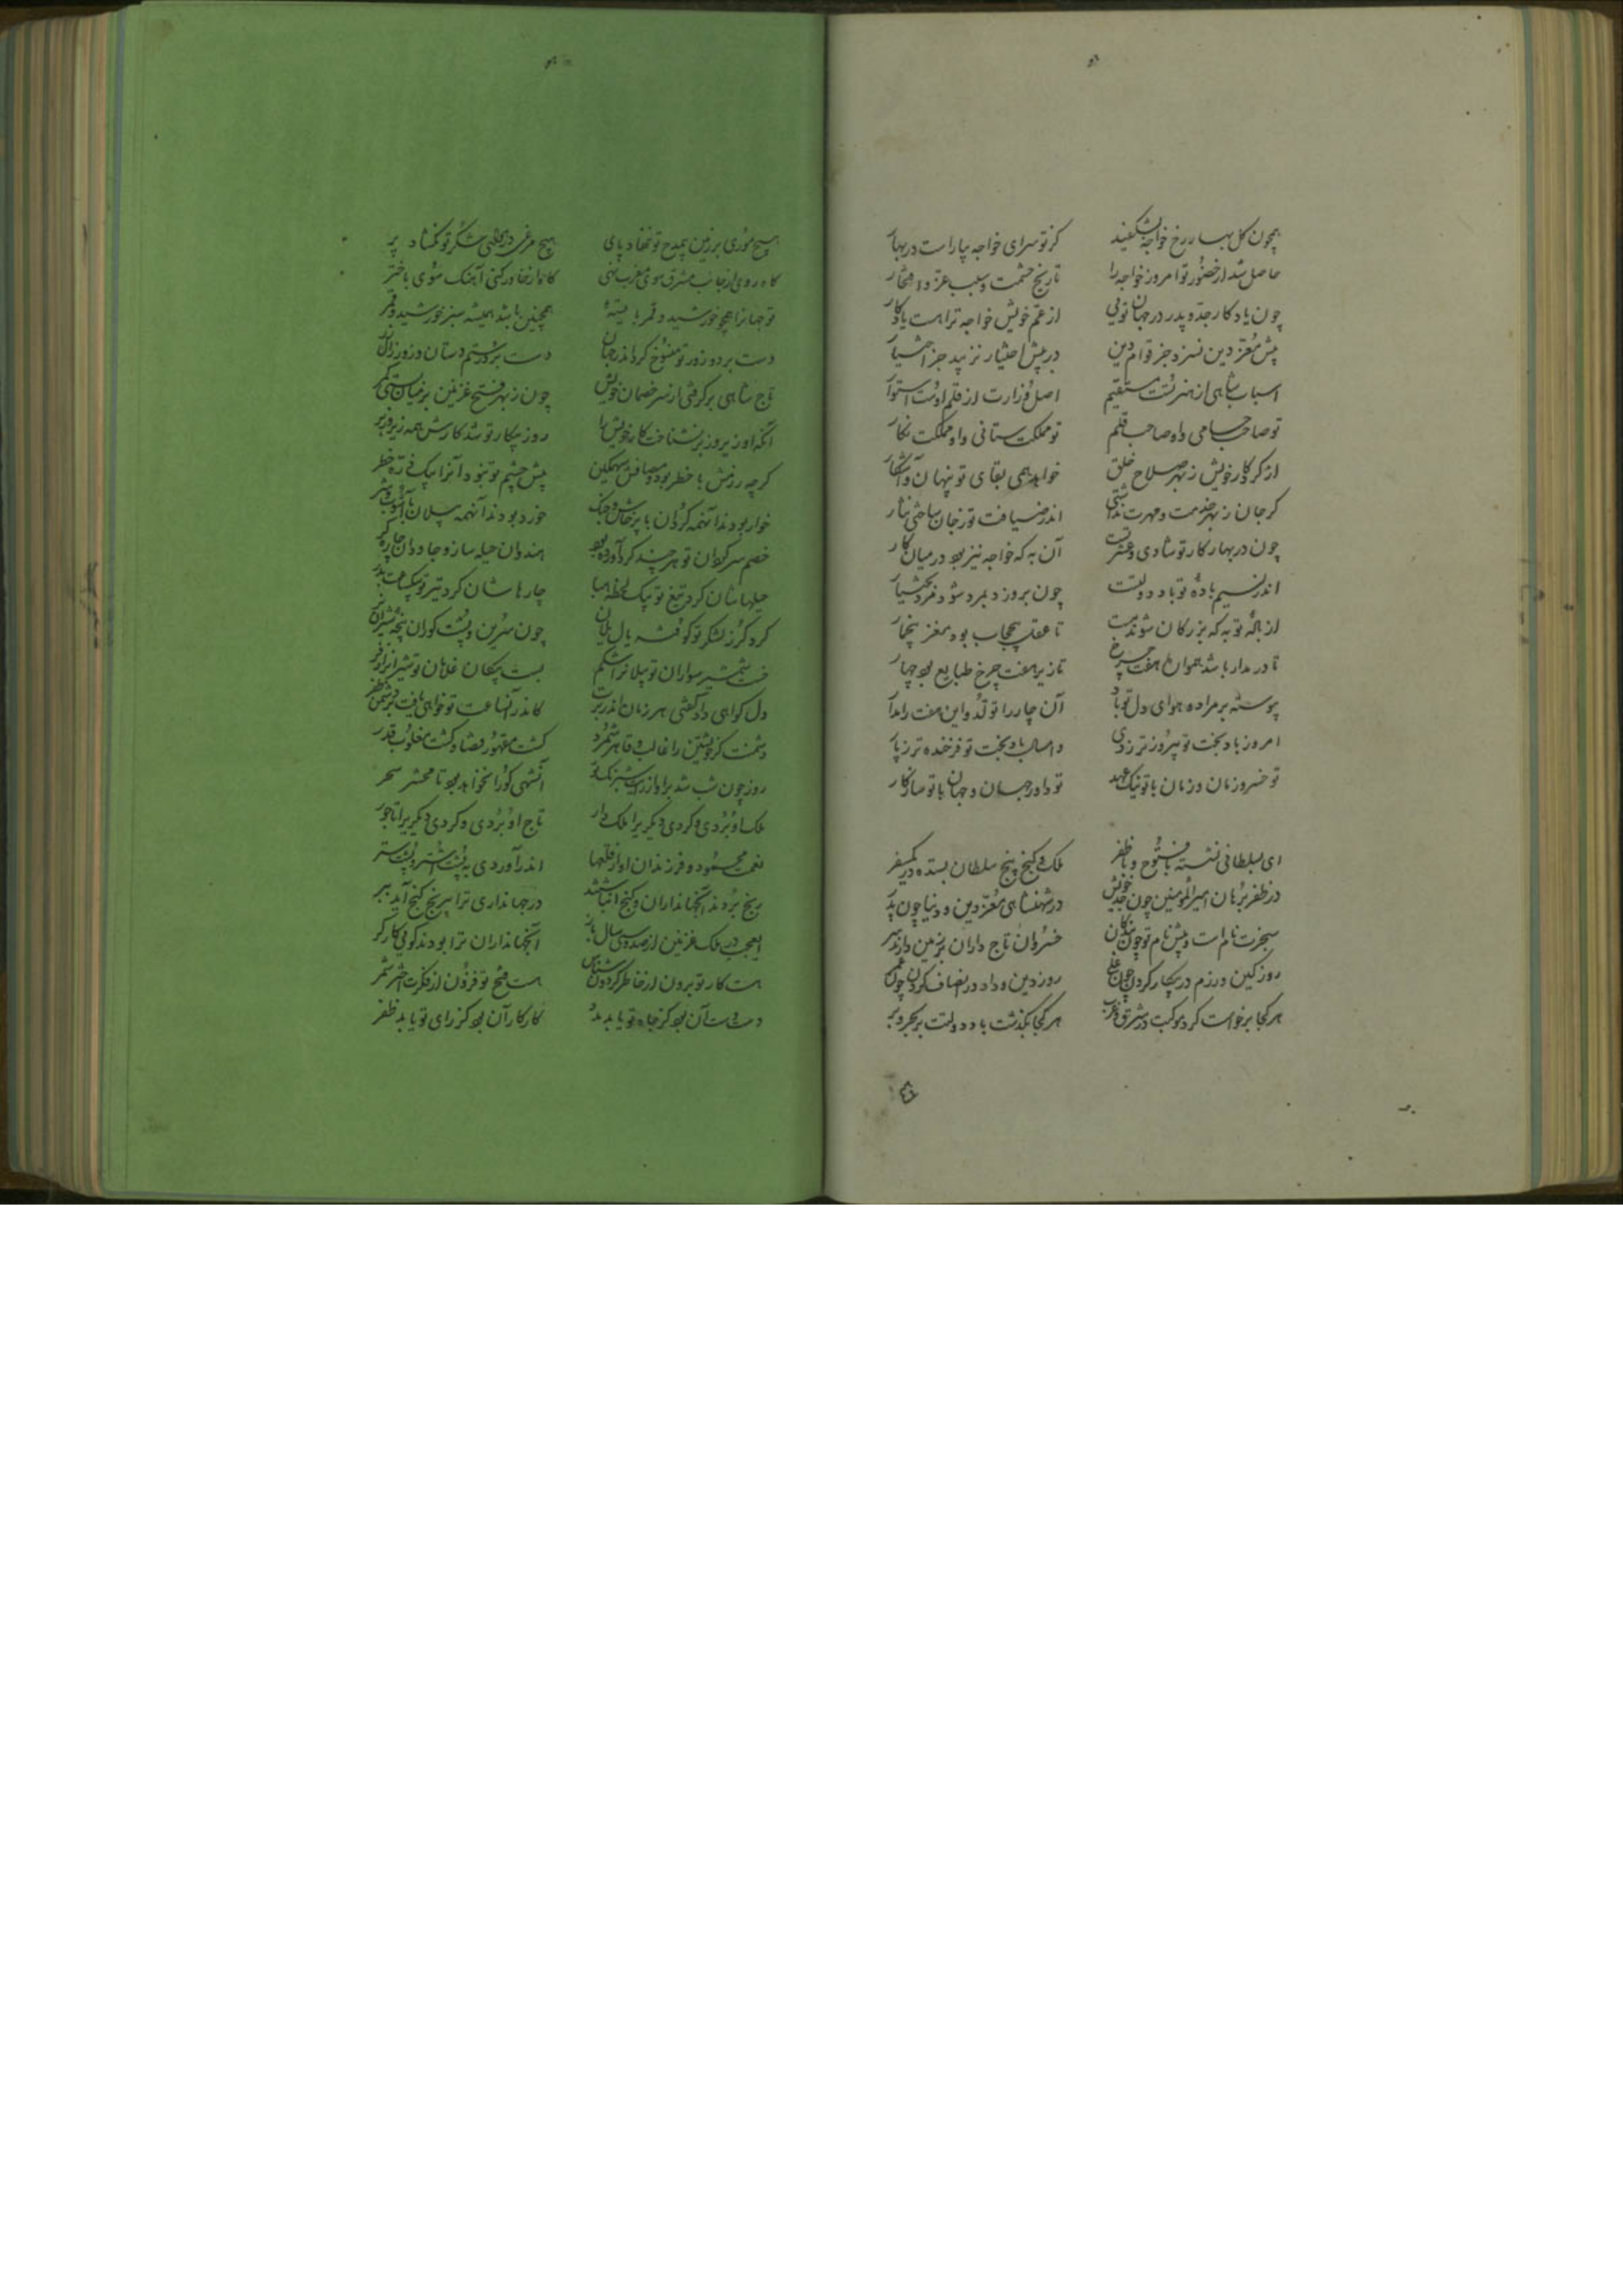 همچون گل بهار رخ خواجه بشکفید گر تو سرای خواجه بیاراست در بهار
حاصل شد از حضور تو امروز خواجه را تاریخ حشمت و سبب عز و افتخار
چون یادگار جد و پدر در جهان تویی از عم خویش خواجه ترا هست یادگار
پیش معز دین نسزد جز قوام دین در پیش اختیار نزیبد جز اختیار
اسباب شاهی از هنر تست مستقیم اصل وزارت از قلم اوست استوار
تو صاحب حسامی و او صاحب قلم تو مملکت ستانی و او مملکت نگار
از کردگار خویش ز بهر صلاح خلق خواهد همی بقای تو پنهان و آشکار
گر جان ز بهر خدمت و مهرت نداشتی اندر ضیافت تو ز جان ساختی نثار
چون در بهار کار تو شادی و عشرتست آن به که خواجه نیز بود در میان کار
اندر نسیم باده تو باد دولتست چون بروزد بمرد شود مرد بختیار
از باده تو به که بزرکان شوند مست تا عقل بی حجاب بود مغز بی خمار
تا در مدار باشد همواره هفت چرخ تا زیر هفت چرخ طبایع بود چهار
پیوسته بر مراد و هوای دل تو باد آن چار را تولد و این هفت را مدار
امروز باد بخت تو پیروزتر ز دی و امسال باد بخت تو فرخنده تر ز پار
تو خسرو زمان و زمان با تو نیک عهد تو داور جهان و جهان با تو سازگار
ای بسلطانی نشسته با فتوح و با ظفر ملک و گنج پنج سلطان بستده در یک سفر
در ظفر برهان امیرالمؤمنین چون جد خویش در شهنشاهی معز دین و دنیا چون پدر
سنجرت نام است و پیش نام تو چون بندگان خسروان تاج داران بر زمین دارند سر
روز کین و رزم در پیکار کردن چون علی روز دین و داد در انصاف کردن چون عمر
هر کجا برخواست گرد موکبت در شرق و غرب هر کجا بگذشت باد دولتت بر بحر و بر
هیچ موری بر زمین بی مدح تو ننهاد پای هیچ مرغی در هوا بی شکر تو نگشاد پر
گاه روی از جانب مشرق سوی مغرب نهی گاه از خاور کنی آهنگ سوی باختر
تو جهانرا همچو خورشید و قمر بایسته همچنین باشد همیشه سیر خورشید و قمر
دست برد و زور تو منسوخ کرد اندر جهان دست برد رستم دستان و زور زال زر
تاج شاهی برگرفتی از سر خصمان خویش چون ز بهر فتح غزنین بر میان بستی کمر
آنکه او ز پیروز بر نشناخت کار خویش را روز پیکار تو شد کارش همه زیر و زبر
گرچه رزمش با خطر بود و مصافش سهمگین پیش چشم تو نبود آنرا بیک ذره خطر
خوار بودند آنهمه گردان با پرخاش و جنگ خورد بودند آنهمه پیلان با آشوب و شر
خصم سرگردان تو هر چند گرد آورده بود هندوان حیله ساز و جادوان چاره گر
حیلهاشان کرد تیغ تو بیک لحظه هبا چارهاشان کرد تیر تو بیک ساعت هدر
کرد گرز لشکر تو کوفته یال یلان چون سرین و پشت گوران پنجه شیران نر
خست شمشیر سواران تو پیلانرا شکم بست پیکان غلامان تو شیرانرا زفر
دل گواهی داد گفتی هر زمان اندر برت کاندر آنساعت تو خواهی یافت بر دشمن ظفر
دشمنت کز خویشتن را غالب و قاهر شمرد گشت مقهور قضا و گشت مغلوب قدر
روز چون شب شد برو از رای شبرنگ تو آنشبی کورا نخواهد بود تا محشر سحر
ملک او بردی و کردی دیگریرا ملک دار تاج او بردی و کردی دیگریرا تاجور
نعمت محمود و فرزندان او از قلعها اندر آوردی به پشت اشتر و پشت ستر
رنج بردند آنجهانداران و گنج انباشتند در جهانداری ترا بی رنج گنج آمد ببر
ای عجب در ملک غزنین از صد و سی سال باز آنجهانداران ترا بودند گویی کارگر
هست کار تو برون از خاطر گردون شناس هست فتح تو فزون از فکرت اختر شمر
دست دست آن بود کز جاه تو یابد مدد کار کار آن بود کز رای تو یابد ظفر